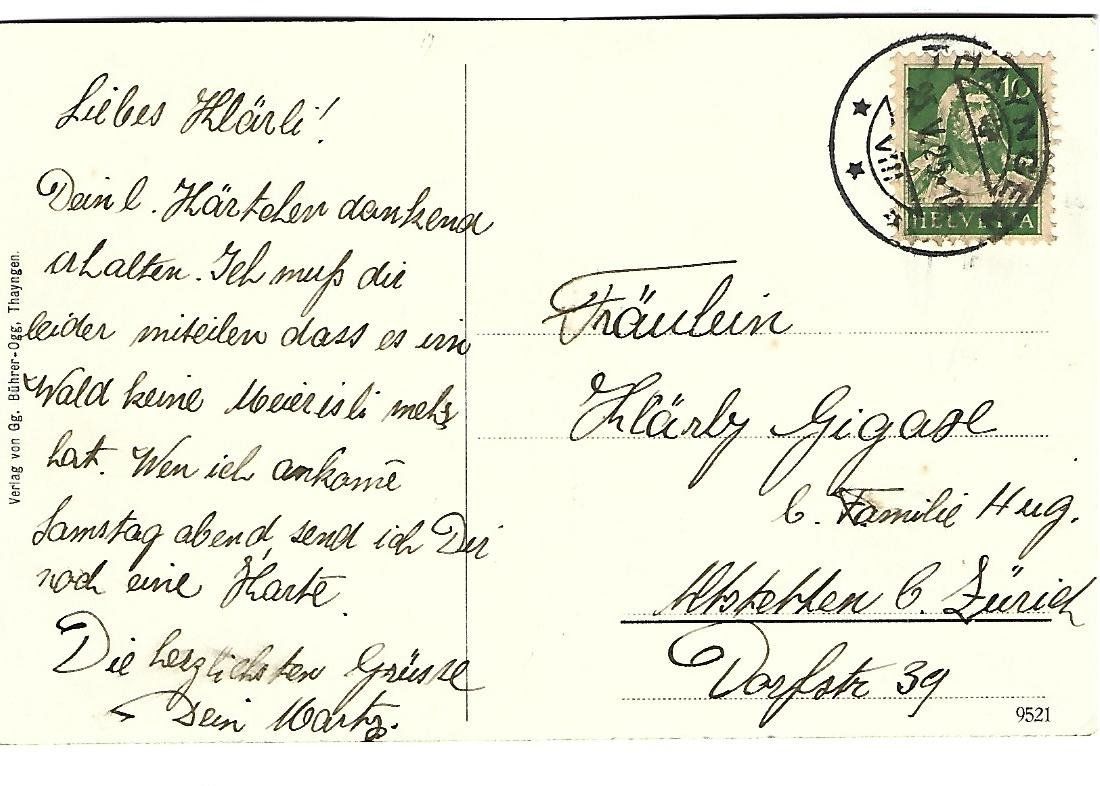 Liebes Klärli!
Dein l. Kärtchen dankend
erhalten. Ich muß dir
leider miteilen dass es im
Wald keine Meierisli mehr
hat. Wen ich ankome̅
Samstag abend, send ich Dir
noch eine Karte.
Die herzlichsten Grüsse
Dein
Verlag von Gg. Bührer-Ogg, Thayngen.
THAYNGEN
VIII
10
HELVETIA
Fräulein
Klärly
b. Familie Hug.
Altstetten b. Zürich
Dorfstr 39
9521